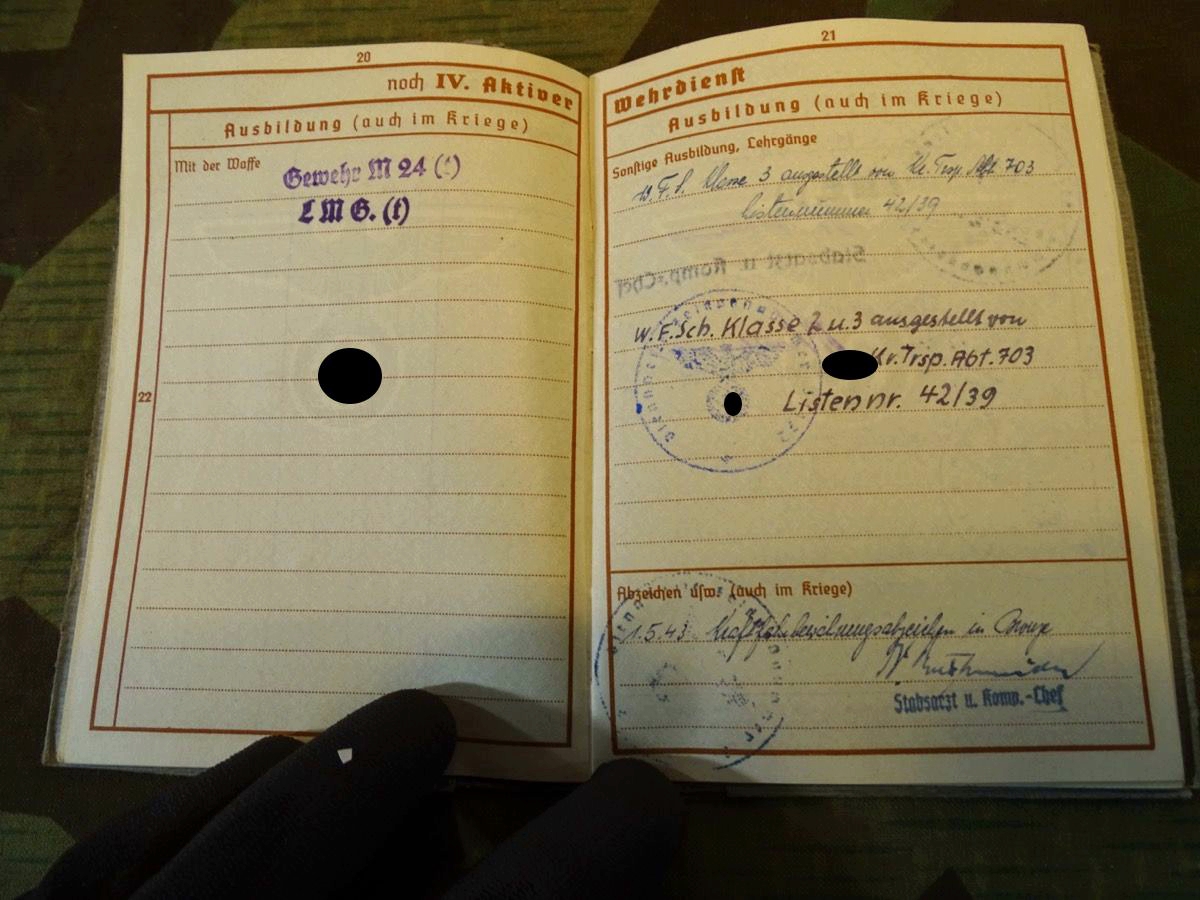 20
noch IV. Aktiver
Ausbildung (auch im Kriege)
Mit der Waffe
Gewehr M 24 (t)
L M G. (t)
22
21
Wehrdienst
Ausbildung (auch im Kriege)
Sonstige Ausbildung, Lehrgänge
W. F. S. Klasse 3 ausgestellt von Kr. Trsp. Abt. 703
Listennummer 42/39
Stabsarzt u. Komp.-Chef
W.F.Sch. Klasse 2 u. 3 ausgestellt von
Kr. Trsp. Abt. 703
Listennr. 42/39
Abzeichen usw. (auch im Kriege)
1.5.43 Kraftfahrbewährungsabzeichen in Bronze
Stabsarzt u. Komp.-Chef